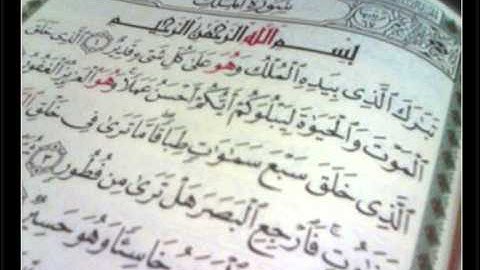 سُورَةُ الْمُلْكِ
بِسْمِ اللَّهِ الرَّحْمَٰنِ الرَّحِيمِ
تَبَٰرَكَ الَّذِي بِيَدِهِ الْمُلْكُ وَهُوَ عَلَىٰ كُلِّ شَيْءٍ قَدِيرٌ ١ الَّذِي خَلَقَ
الْمَوْتَ وَالْحَيَوٰةَ لِيَبْلُوَكُمْ أَيُّكُمْ أَحْسَنُ عَمَلًا وَهُوَ الْعَزِيزُ الْغَفُورُ
الَّذِي خَلَقَ سَبْعَ سَمَٰوَٰتٍ طِبَاقًا مَّا تَرَىٰ فِي خَلْقِ
فَارْجِعِ الْبَصَرَ هَلْ تَرَىٰ مِن فُطُورٍ ٣
خَاسِئًا وَهُوَ حَسِيرٌ